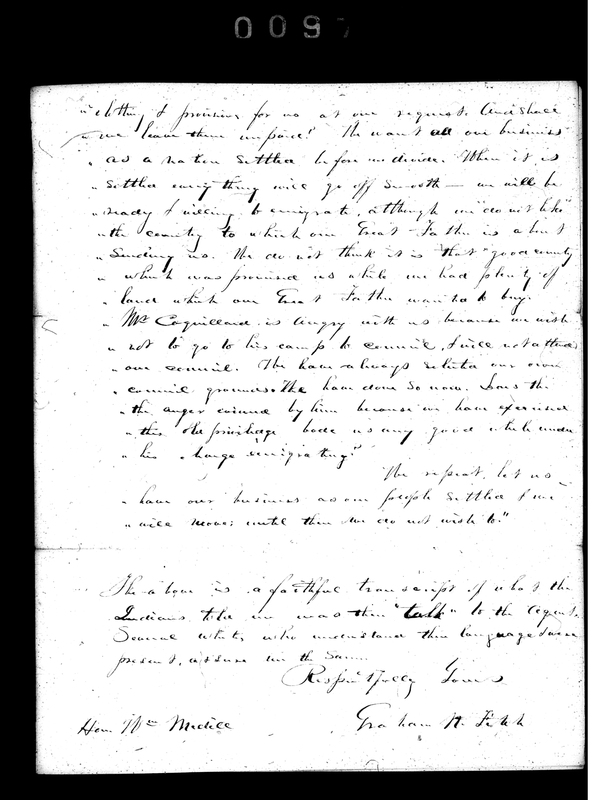 0097
" clothing & provisions for us at our request. And shall
" we leave them unpaid? We want all our business
" as a nation settled before we divide. When it is
" settled every thing will go off smooth — we will be
" ready & willing to emigrate, although we "do not like"
" the country to which our Great Father is about
" sending us. We do not think it is that "good country
" which was promised us while we had plenty of
" land which our Great Father wanted to buy.
" Mr Coquillard is angry with us because we wish
" not to go to his camp to council, & will not attend
" our council. We have always selected our own
" council grounds. We have done so now. Does the
" the anger evinced by him because we have exercised
" this old privilege bode us any good while under
" his charge emigrating?"
We repeat, let us
" have our business as our people settled & we
" will move; until then we do not wish to."
The above is a faithful transcript of what the
Indians told me was their "talk" to the Agent.
Several whites who understand their language & were
present, assure me the same.
Respectfully Yours
Graham N. Fitch
Hon. Wm Medill